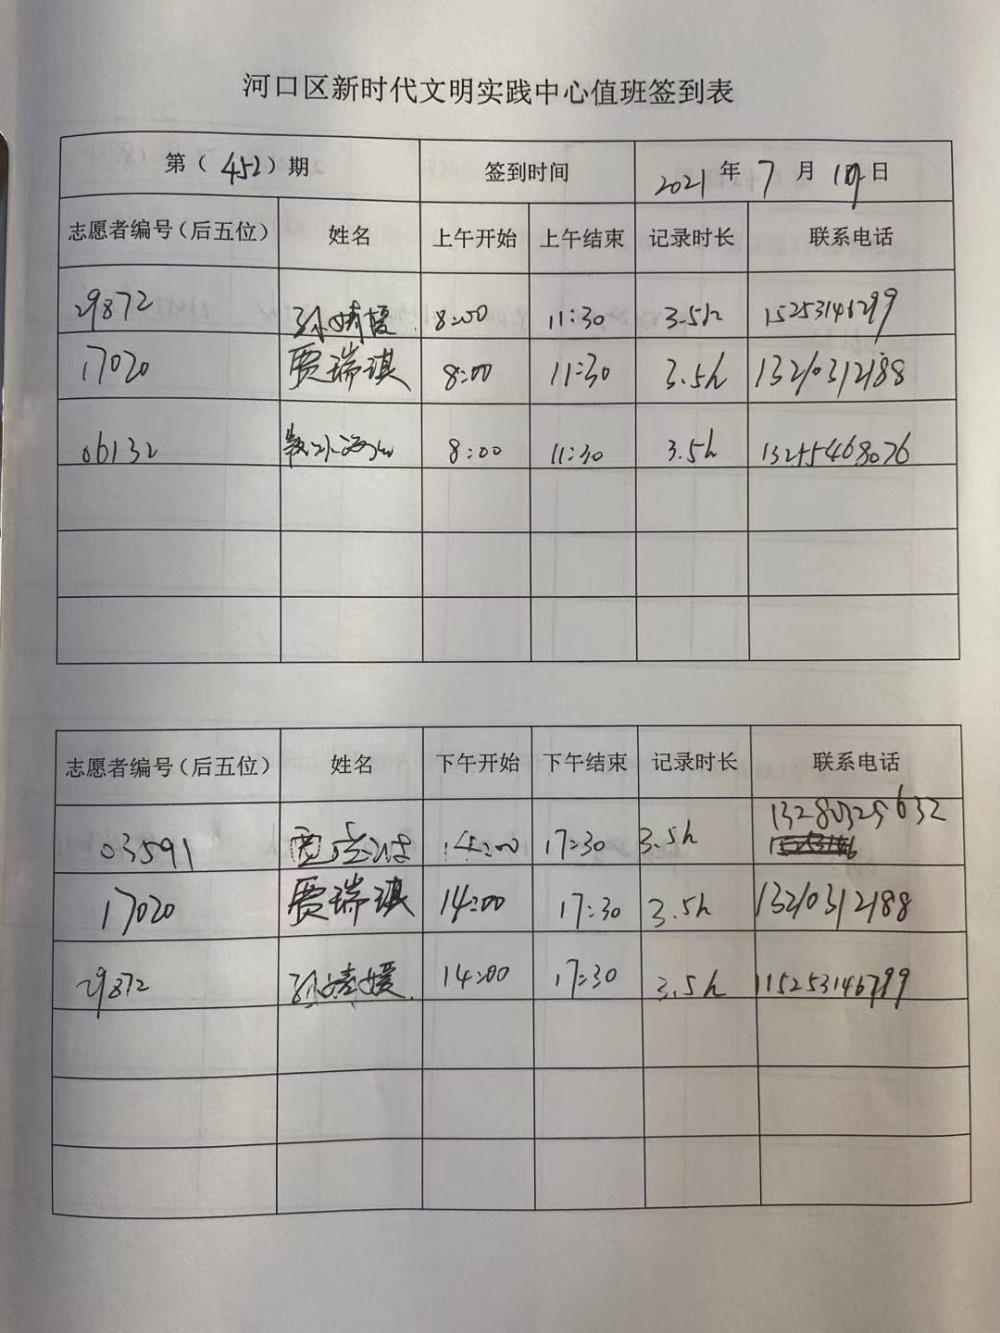 河口区新时代文明实践中心值班签到表
第（452）期 签到时间 2021年 7月 日
志愿者编号（后五位） 姓名 上午开始 上午结束 记录时长 联系电话
29872 孙婧媛 8:00 11:30 3.5h 15253146799
17020 贾瑞琪 8:00 11:30 3.5h 13210312188
06132 8:00 11:30 3.5h 13255468076
志愿者编号（后五位） 姓名 下午开始 下午结束 记录时长 联系电话
03591 14:00 17:30 3.5h 13280325632
17020 贾瑞琪 14:00 17:30 3.5h 13210312188
29872 孙婧媛 14:00 17:30 3.5h 15253146799